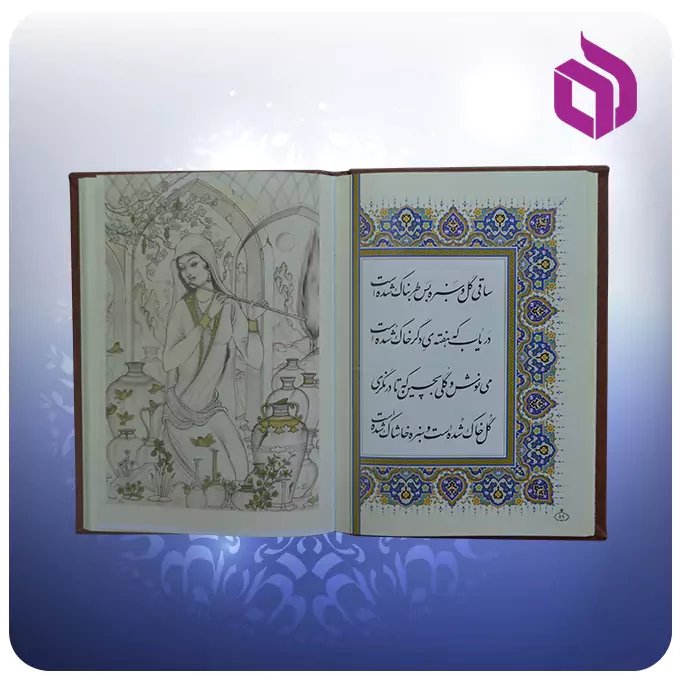 ساقی گل و سبزه بس طربناک شده است
دریاب که هفته‌ی دگر خاک شده است
می نوش و گلی بچین که تا درنگری
گل خاک شده است و سبزه خاشاک شده است
۸۹